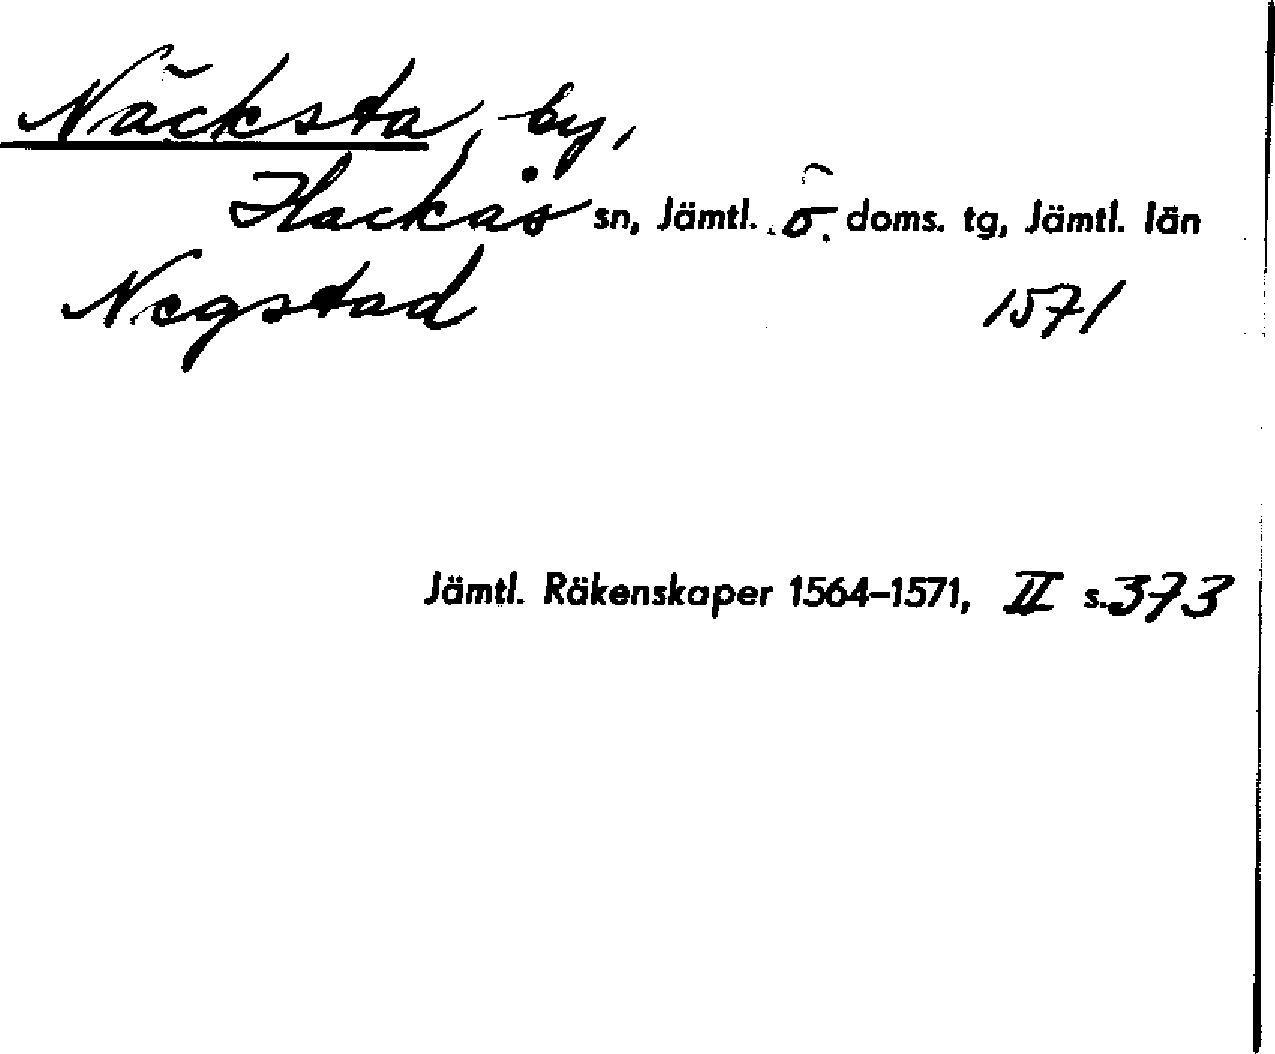 Näcksta, by,
Hackås sn, Jämtl. ö. doms. tg, Jämtl. län
Negstad 1571
Jämtl. Räkenskaper 1564–1571, II s. 373